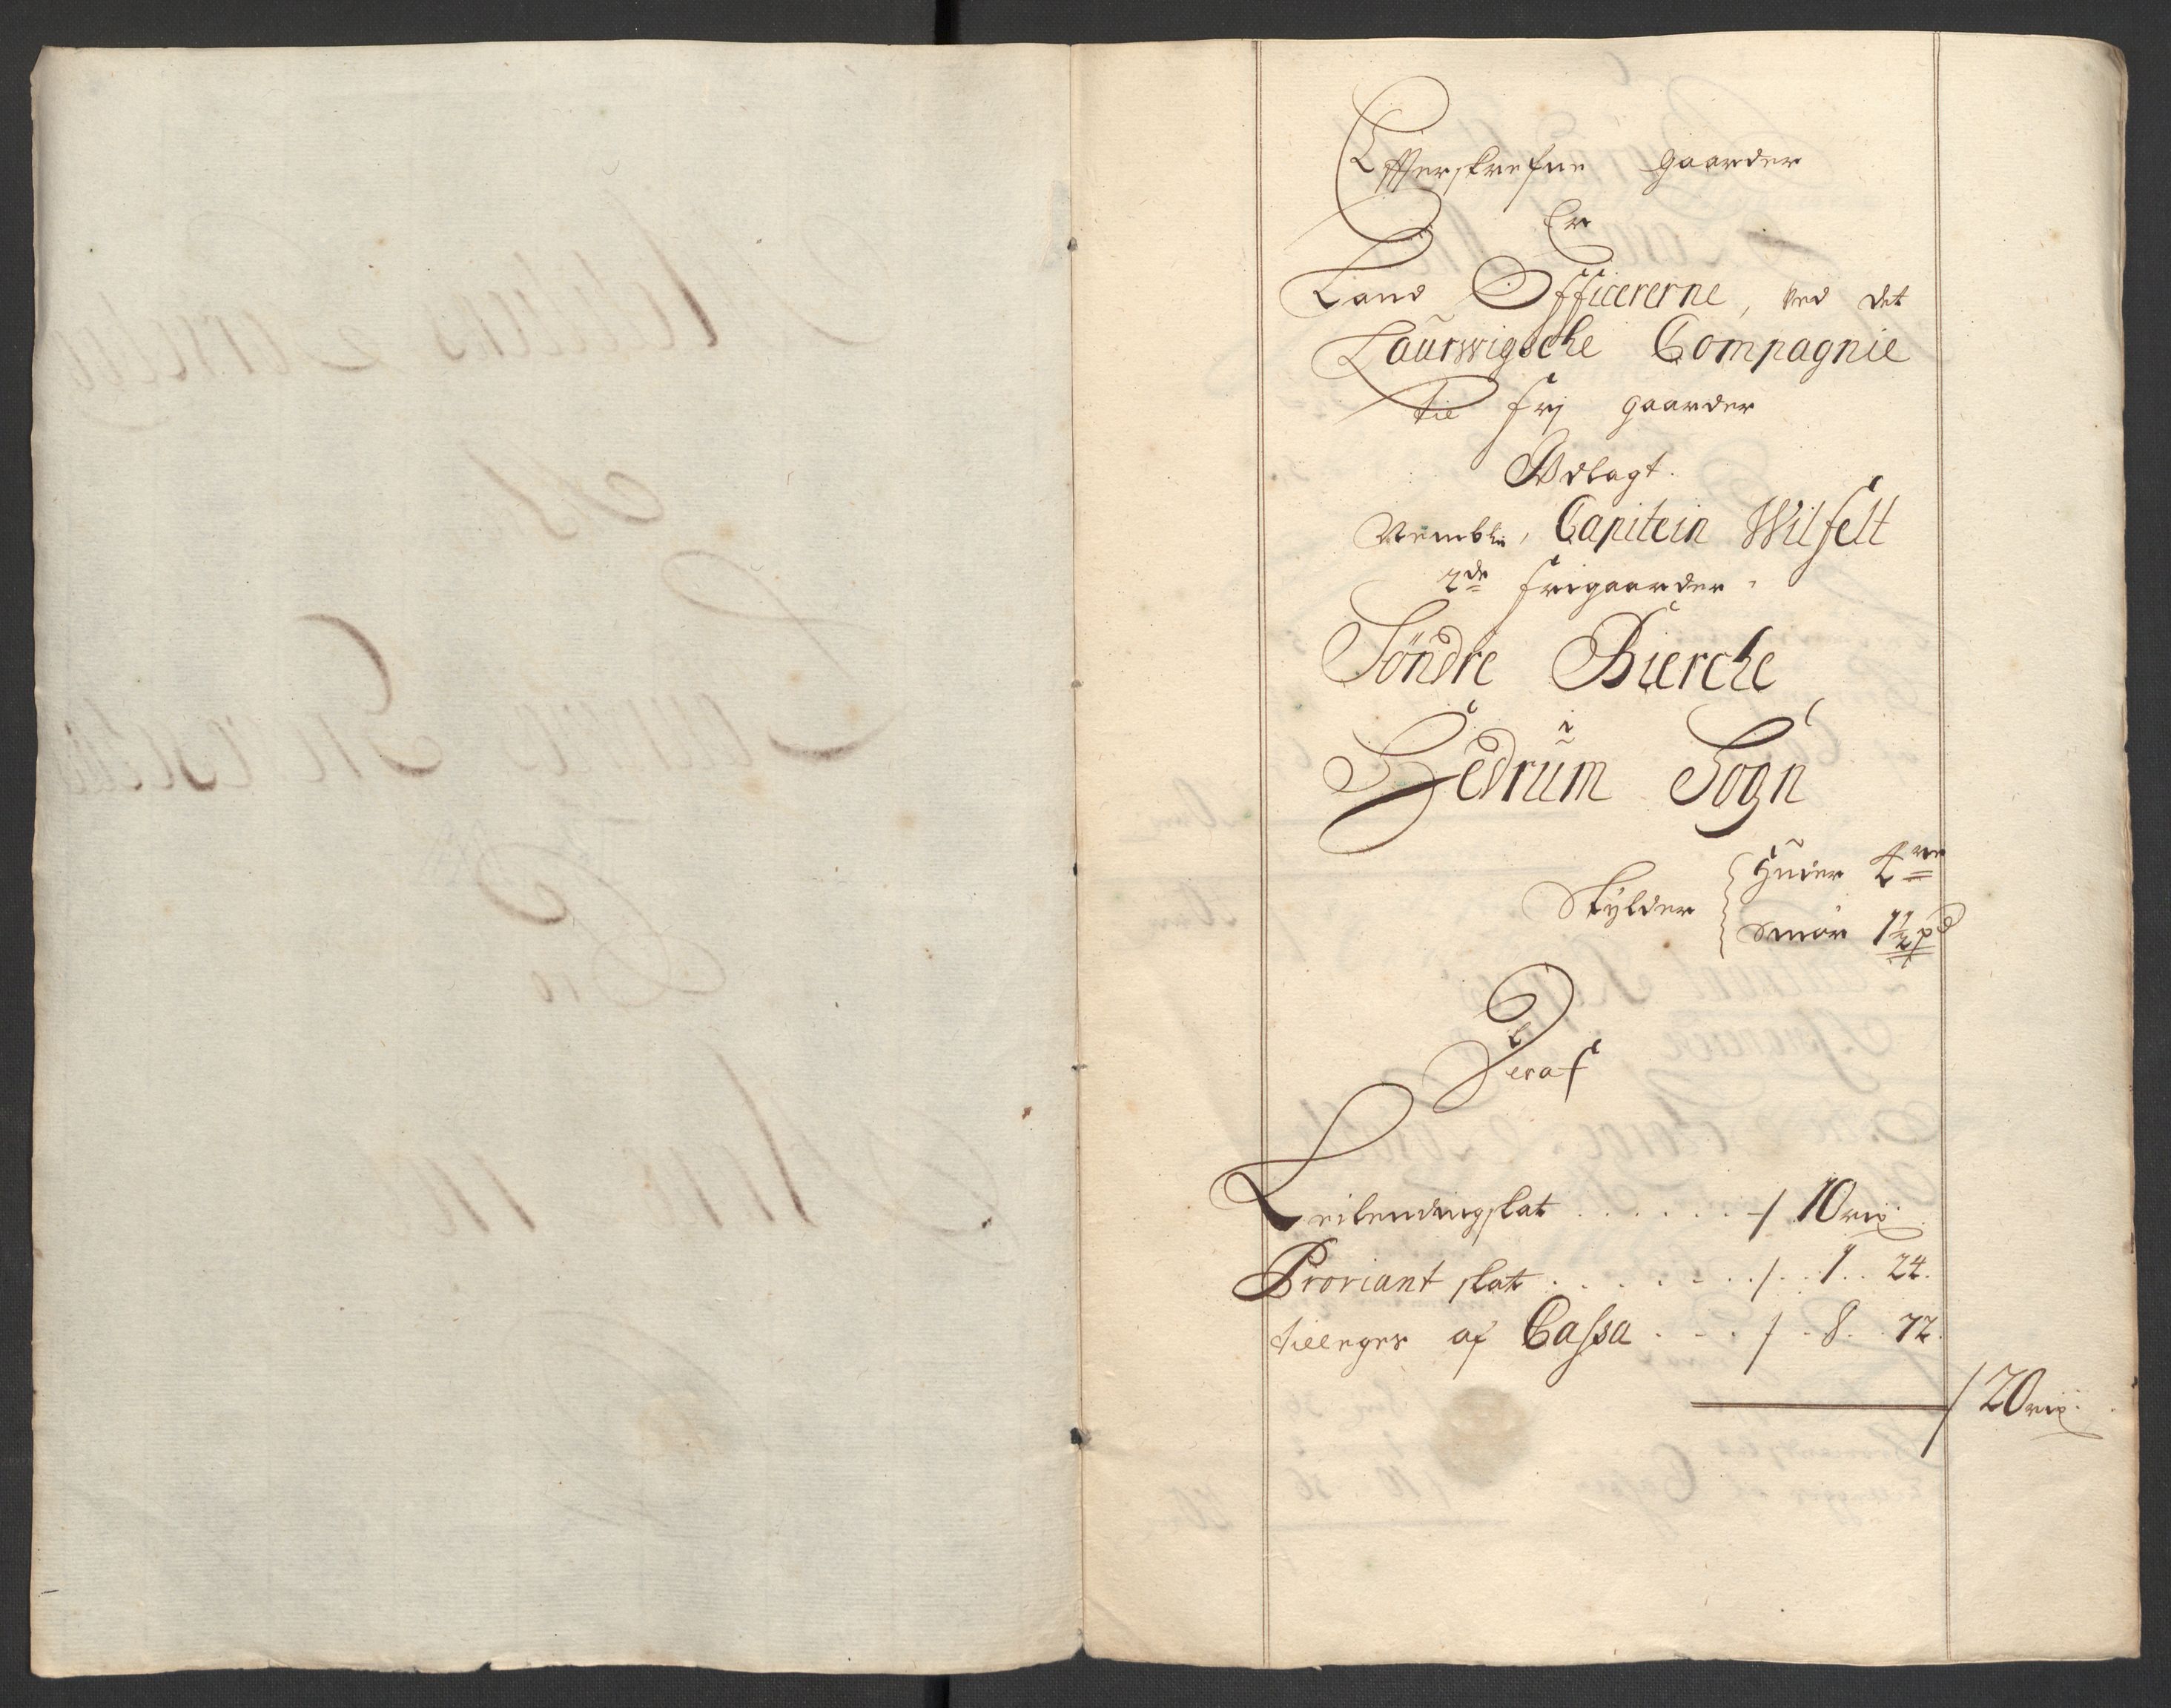 Efferskrefne gaarder
Er
Land Officererne, ved det
Laurwigsche Compagnie
till frj gaarder
Udlagt.
Nembl., Capitein Wilfelt
2de frigaarder,
Söndre Bierche
i
Hedrum Sogn
Skylder
Huder 4re
Smör 1½ pd
Deraf
Leilendingskat . . . . . . . 10
Proviant skat . . . . . . . . 1 . . 24.
tilleges af Cassa . . . . 8 . . 72.
20